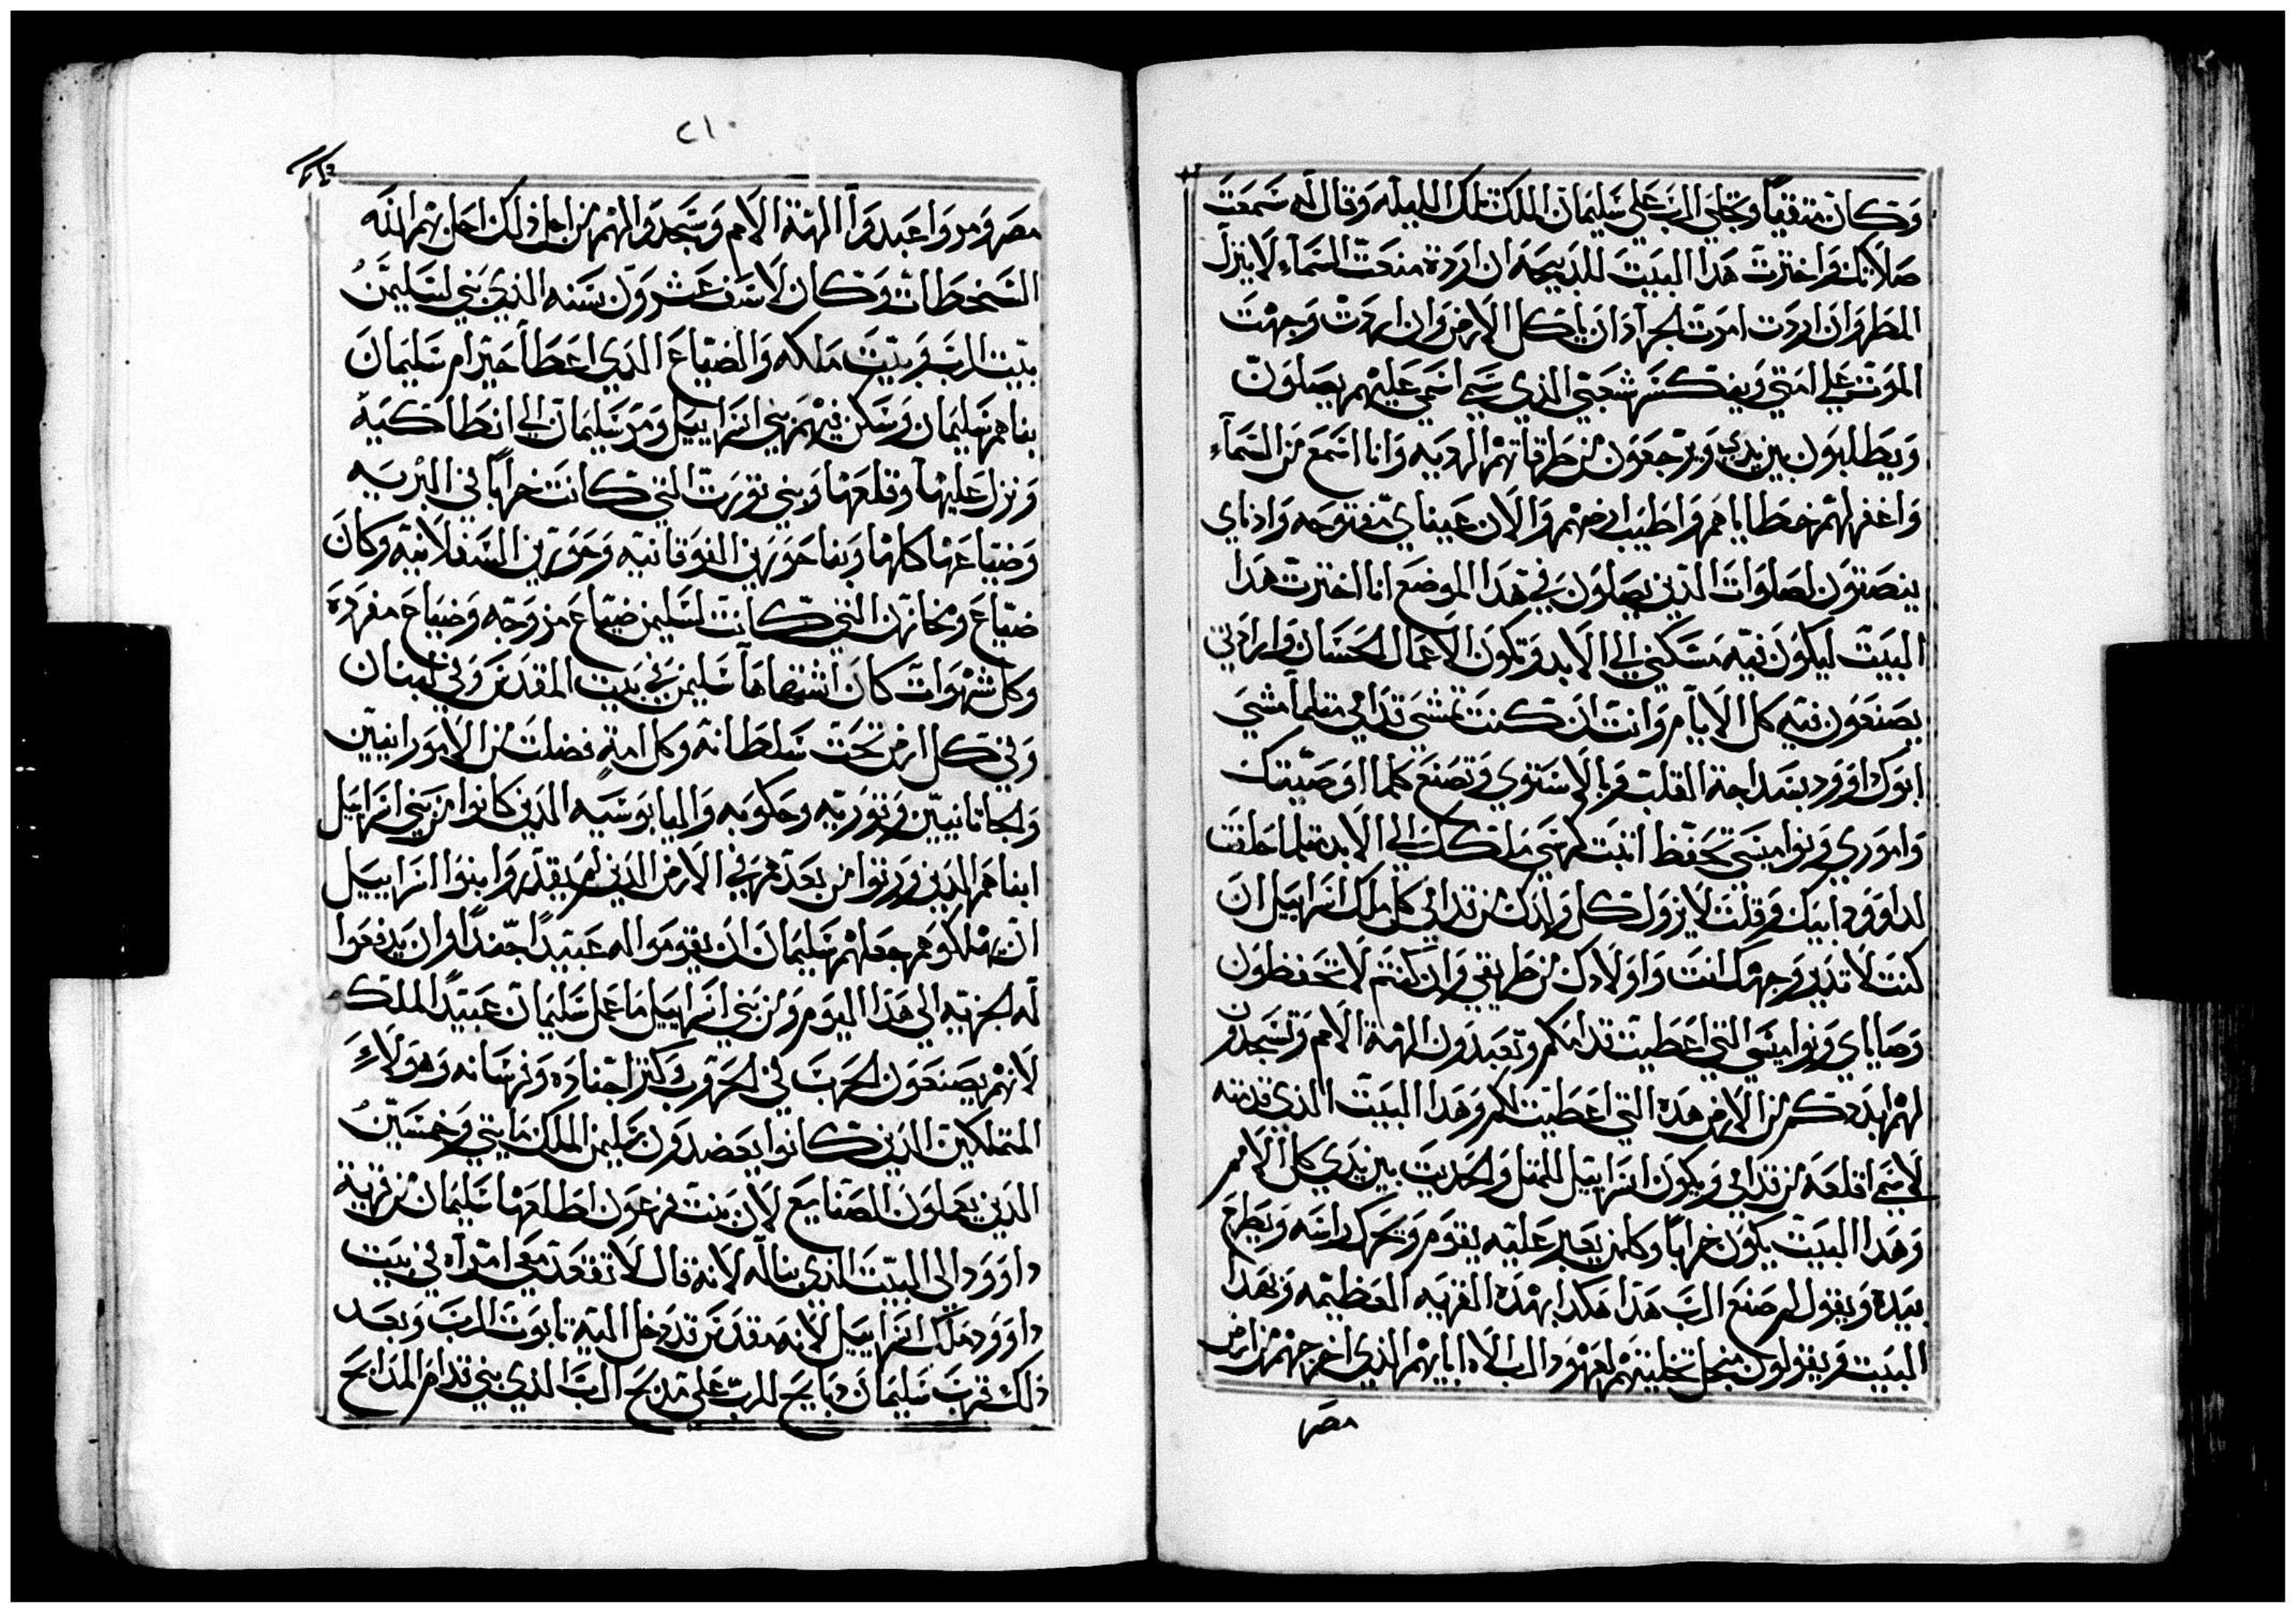 وكان متقيا وتجلي الرب علي سليمان الملك تلك الليله وقال له سمعت
صلاتك واخترت هدا البيت للدبيحه ان اردة منعت السماء لا ينزل
المطر وان اردت امرت الجراد ان ياكل الارض وان اردت وجهت
الموت علي امتي وينكسر شعبي الدي سمي اسمي عليهم يصلون
ويطلبون بين يدي ويرجعون من طرقاتهم الرديه وانا اسمع من السماء
واغفر لهم خطاياهم واطيب ارضهم والان عيناي مفتوحه وادناي
ينصتون لصلوات الدين يصلون في هدا الموضع انا اخترت هدا
البيت ليكون فيه مسكني الي الابد وتكون الاعمال الحسان وارادتي
يصنعون فيه كل الايام وانت ان كنت تمشي قدامي متلما مشي
ابوك داوود بسداجة القلب وبالاستوي وتصنع كلما اوصيتك
واموري ونواميسي تحفظ اتبت كرسي ملكك الي الابد متلما حلفت
لداوود ابيك وقلت لا يزول كل ولدك من قدامي كل ملك اسراييل ان
كنت لا تدير وجهك انت واولادك من طريقي وان كنتم لا تحفظون
وصاياي ونواميسي التي اعطيت قدامكم وتعبدون الهة الامم وتسجدون
لهم ابددكم من الارض هده التي اعطيت لكم وهدا البيت الدي قدسته
لاسمي اقلعه من قدامي ويكون اسراييل للمتل والحديت بين يدي كل الامم
وهدا البيت يكون خرابا وكلمن يعبر عليه يقوم ويحرك راسه ويطرح
بيده ويقول لم صنع الرب هدا هكدا بهده القريه العظيمه وبهدا
البيت ويقولون منجل تخليتهم لعهود الرب الاه ابايهم الدي اخرجهم من ارض
مصر
٢١٠
مصر ومروا عبدوا الهة الامم وسجدوا لهم من اجل دلك احل بهم الله
السخطات وكان لاسف عشرون سنه الدي بني لسليمن
بيت الرب وبيت ملكه والضياع الدي اعطا حيرام سليمان
بناهم سليمان وسكن فيهم بني اسراييل ومر سليمان الي انطاكية
ونزل عليها وقلعها وبني تورت التي كانت خرابا في البريه
وضياعها كلها وبنا حورين الفوقانيه وحورين السفلانيه وكان
ضياع ومخازن التي كانت لسليمن ضياع مزوجه وضياع مفرده
وكل شهوات كان اشتهاها سليمن في بيت المقدس وفي لبنان
وفي كل ارض تحت سلطانه وكل امة فضلت من الامورانيين
والجاتانيين وتوريه وحكومه واليابوسيه الدين كانوا من بني اسراييل
ابناهم الدين ورتوا من بعدهم في الارض الدين لم يقدروا بنوا اسراييل
ان يهلكوهم جعلهم سليمان ان يقوموا له عبيدا جندا وان يدفعوا
له الجزيه الي هدا اليوم ومن بني اسراييل ما عمل سليمان عبيد الملك
لانهم يصنعون الحرب في الحروب كتر اجناده وفرسانه وهولاء
المتملكين الدين كانوا يعضدون سليمن الملك مايتي وخمسين
الدين يعملون الصنايع لان بنت فرعون اطلعها سليمان من قرية
داوود الي البيت الدي بنا له لانه قال لا تقعد معي امراه في بيت
داوود ملك اسراييل لانه مقدس قد دخل اليه تابوت الرب وبعد
دلك قرب سليمان دبايح للرب علي مدبح الرب الدي بني قدام المدابح